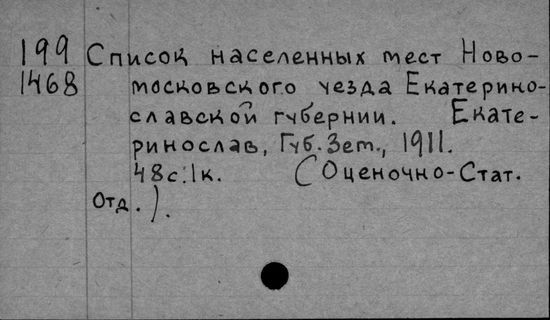 199 Список населенных мест Ново-
1468 московского уезда Екатерино-
славской губернии. Екате-
ринослав, Губ. Зет., 1911.
48с.:1к. (Оценочно-Стат.
Отд.).